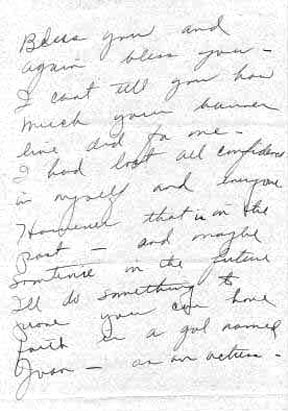 Bless you and
again bless you -
I cant tell you how
much your banner
line did for me -
I had lost all confidence
in myself and everyone
However that is in the
past - and maybe
sometime in the future
I'll do something to
prove you can have
faith in a gal named
Joan - as an actress -